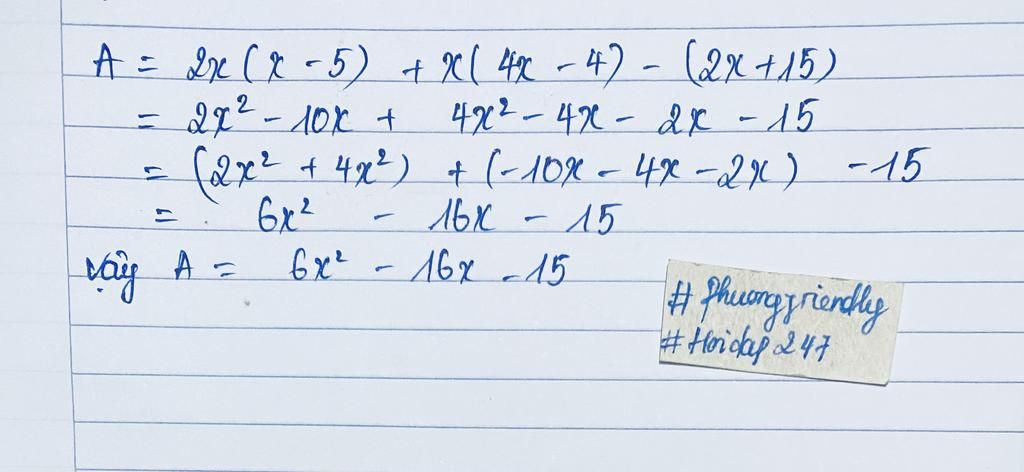 A = 2x(x - 5) + x(4x - 4) - (2x + 15)
= 2x² - 10x + 4x² - 4x - 2x - 15
= (2x² + 4x²) + (-10x - 4x - 2x) - 15
= 6x² - 16x - 15
vậy A = 6x² - 16x - 15
# phuongfriendly
# Hoidap 247